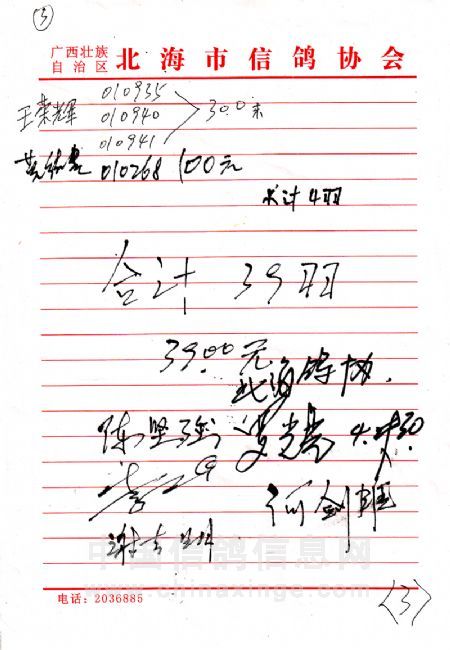 (3)
广西壮族自治区 北海市信鸽协会
010935
王荣辉 010940 300 未
010941
010268 100元
共计4羽
合计 39羽
3900元
北海鸽协.
陈坚强 4.30.
何剑雄
谢吉
中国信鸽信息网
www.chinaxinge.com
电话：2036885
(3)